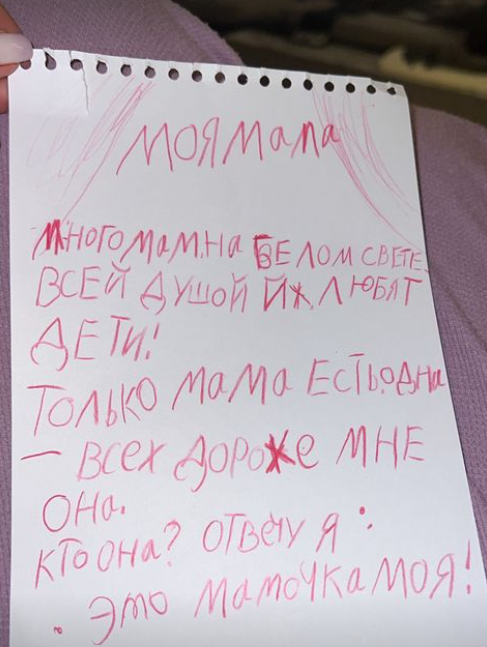 МОЯ МАПА
МНОГО МАМ.НА БЕЛОМ СВЕТЕ.
ВСЕЙ ДУШОЙ ЙХ ЛЮБЯТ
ДЕТИ!
ТОЛЬКО МАМА ЕСТЬ.ОДНА
— ВСЕХ ДОРОЖЕ МНЕ
ОНА.
КТО ОНА? ОТВЕЧУ Я :
. ЭТО МАМОЧКА МОЯ!